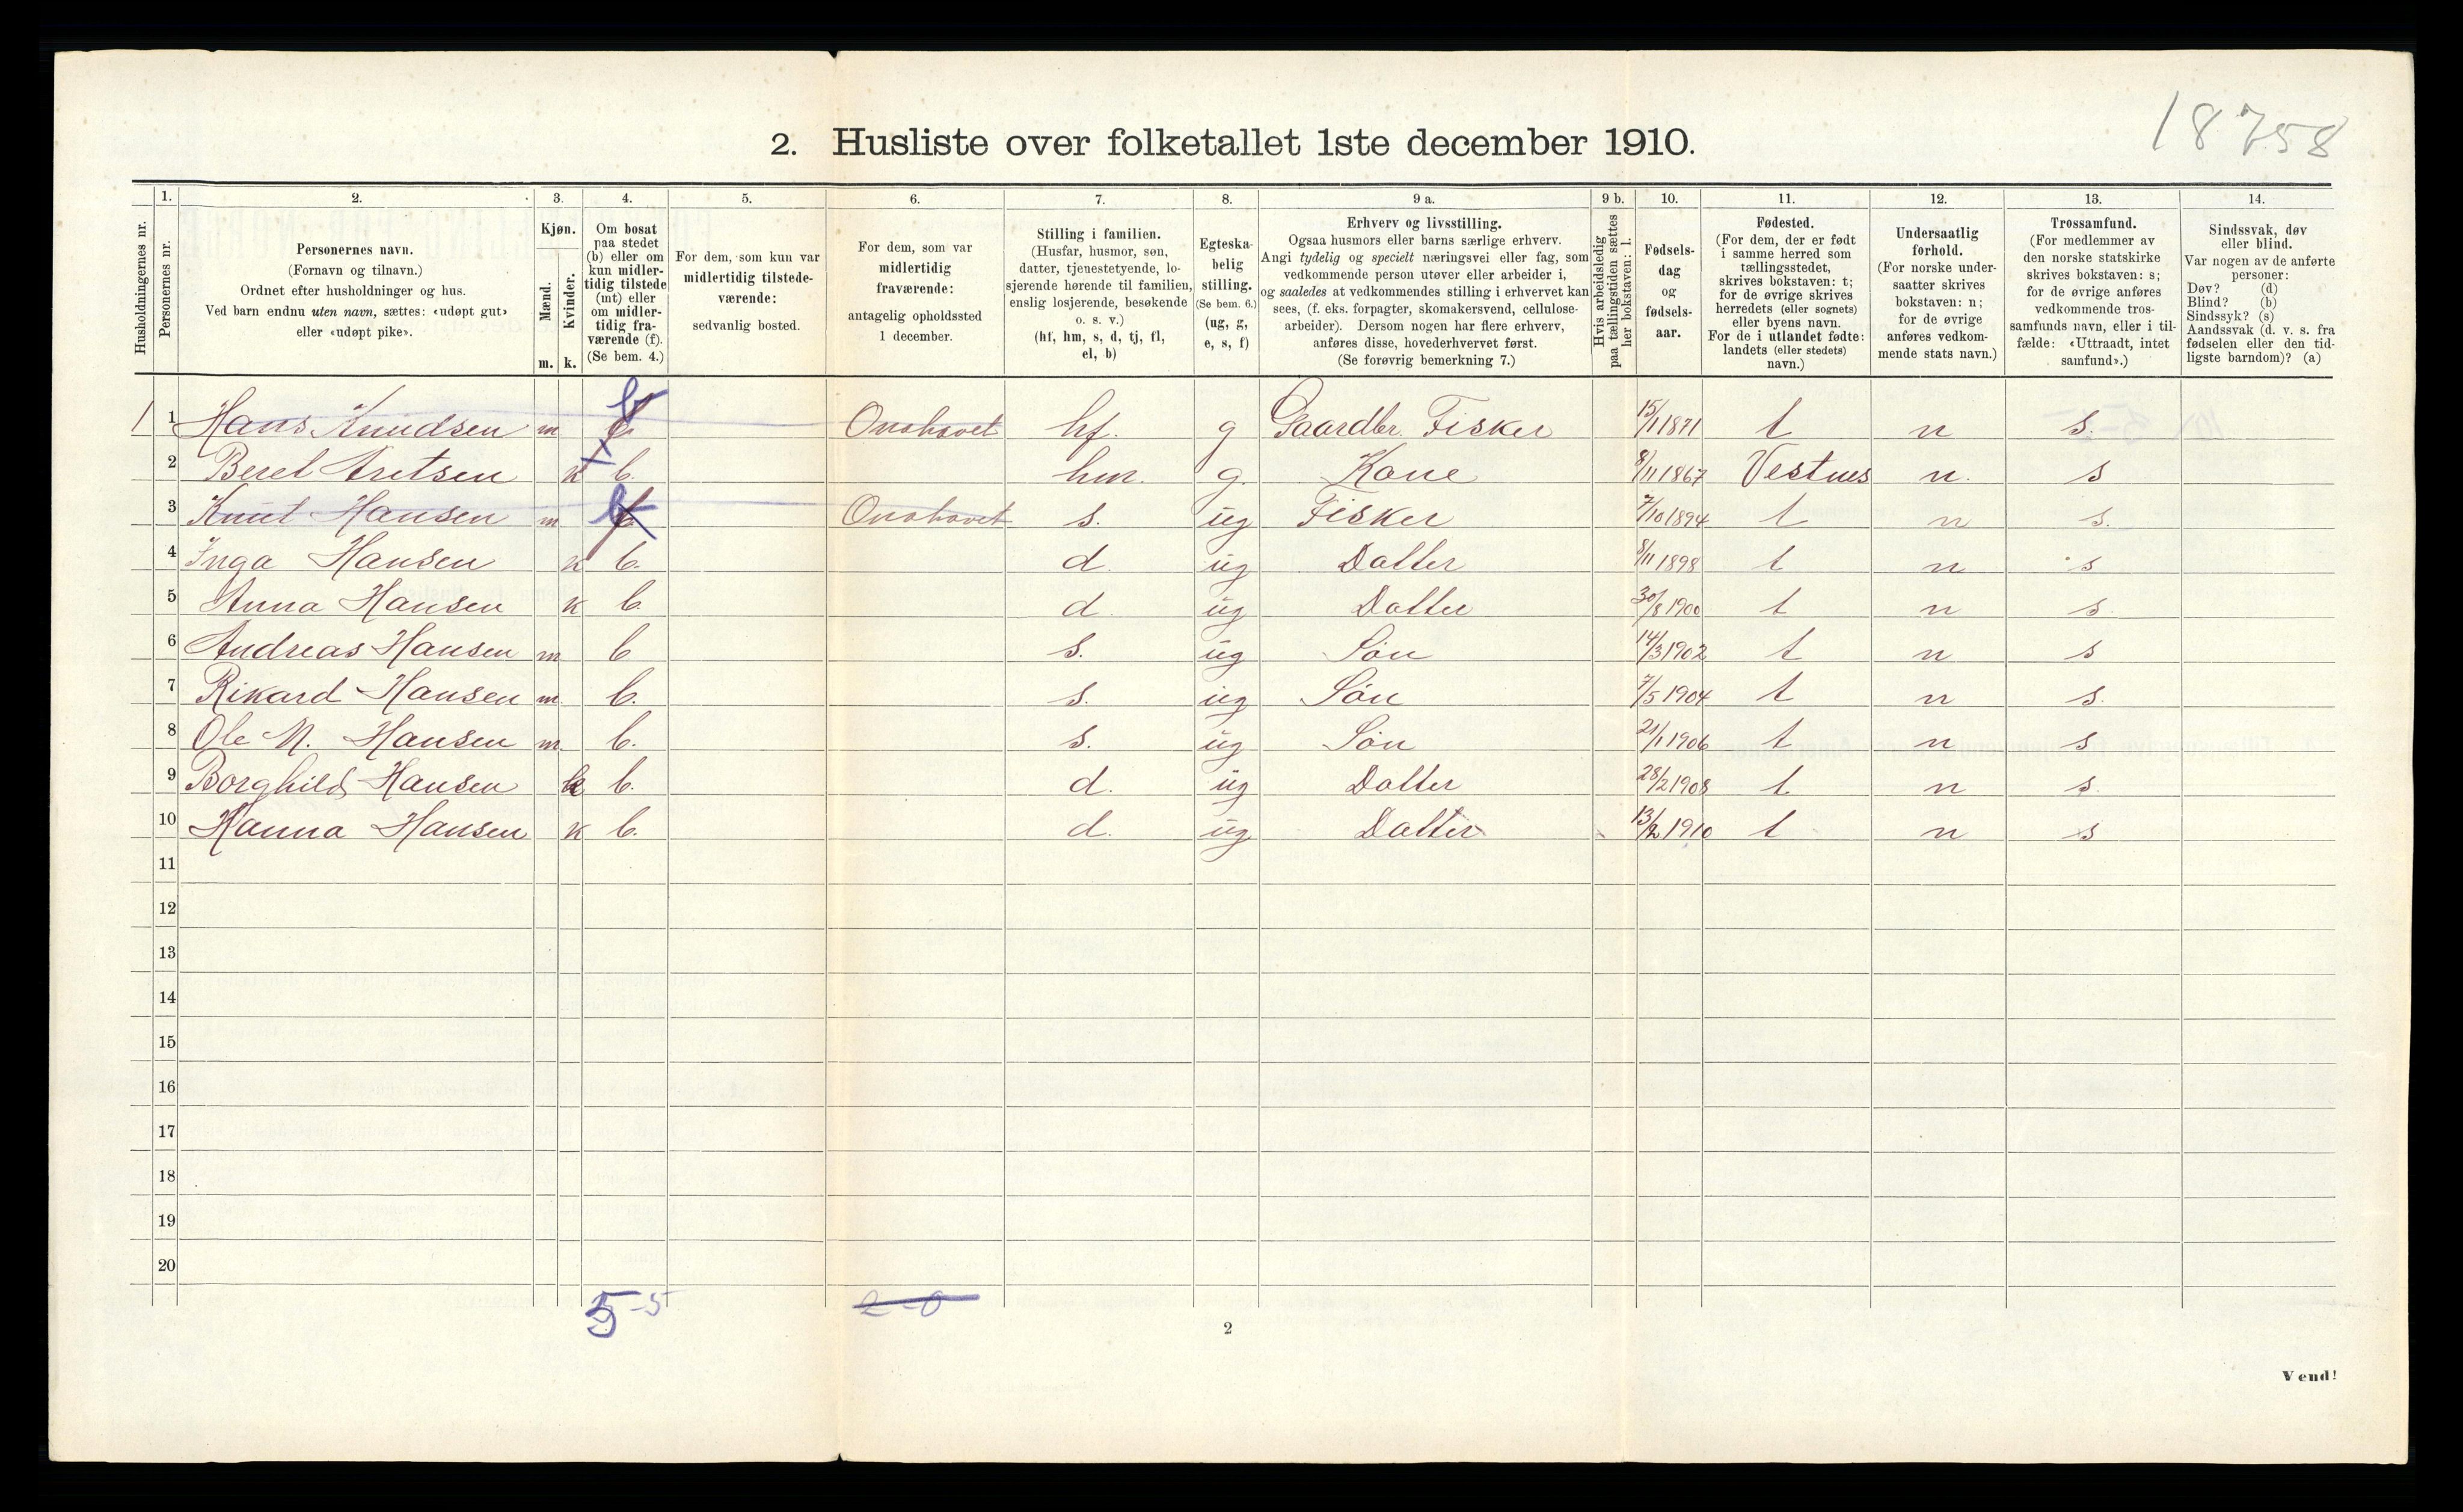 18758
2. Husliste over folketallet 1ste december 1910.
Husholdningernes nr.
1. Personernes nr.
2. Personernes navn.
(Fornavn og tilnavn.)
Ordnet efter husholdninger og hus.
Ved barn endnu uten navn, sættes: «udøpt gut»
eller «udøpt pike».
3. Kjøn.
Mænd. m.
Kvinder. k.
4. Om bosat
paa stedet
(b) eller om
kun midler-
tidig tilstede
(mt) eller
om midler-
tidig fra-
værende (f).
(Se bem. 4.)
5. For dem, som kun var
midlertidig tilstede-
værende:
sedvanlig bosted.
6. For dem, som var
midlertidig
fraværende:
antagelig opholdssted
1 december.
7. Stilling i familien.
(Husfar, husmor, søn,
datter, tjenestetyende, lo-
sjerende hørende til familien,
enslig losjerende, besøkende
o. s. v.)
(hf, hm, s, d, tj, fl,
el, b)
8. Egteska-
belig
stilling.
(Se bem. 6.)
(ug, g,
e, s, f)
9 a. Erhverv og livsstilling.
Ogsaa husmors eller barns særlige erhverv.
Angi tydelig og specielt næringsvei eller fag, som
vedkommende person utøver eller arbeider i,
og saaledes at vedkommendes stilling i erhvervet kan
sees, (f. eks. forpagter, skomakersvend, cellulose-
arbeider). Dersom nogen har flere erhverv,
anføres disse, hovederhvervet først.
(Se forøvrig bemerkning 7.)
9 b. Hvis arbeidsledig
paa tællingstiden sættes
her bokstaven: l.
10. Fødsels-
dag
og
fødsels-
aar.
11. Fødested.
(For dem, der er født
i samme herred som
tællingsstedet,
skrives bokstaven: t;
for de øvrige skrives
herredets (eller sognets)
eller byens navn.
For de i utlandet fødte:
landets (eller stedets)
navn.)
12. Undersaatlig
forhold.
(For norske under-
saatter skrives
bokstaven: n;
for de øvrige
anføres vedkom-
mende stats navn.)
13. Trossamfund.
(For medlemmer av
den norske statskirke
skrives bokstaven: s;
for de øvrige anføres
vedkommende tros-
samfunds navn, eller i til-
fælde: «Uttraadt, intet
samfund».)
14. Sindssvak, døv
eller blind.
Var nogen av de anførte
personer:
Døv? (d)
Blind? (b)
Sindssyk? (s)
Aandssvak (d. v. s. fra
fødselen eller den tid-
ligste barndom)? (a)
1 1 Hans Knudsen m b f Onahavet hf. g Gaardbr. Fisker 15/1 1871 t n s.
2 Beret Aretsen k b. hm. g. Kone 8/11 1867 Vestnes n. s
3 Knut Hansen m b f Onahavet s. ug Fisker 7/10 1894 t n s.
4 Inga Hansen k b. d. ug Datter 8/11 1898 t n s
5 Anna Hansen k b. d. ug Datter 30/8 1900 t n s.
6 Andreas Hansen m b s. ug Søn 14/3 1902 t n s
7 Rikard Hansen m. b. s. ug Søn 7/5 1904 t n s.
8 Ole N. Hansen m. b. s. ug Søn 21/1 1906 t n s
9 Borghild Hansen k b. d. ug Datter 28/2 1908 t n s.
10 Hanna Hansen k b. d. ug Datter 13/2 1910 t n s
11
12
13
14
15
16
17
18
19
20
5-5 2-0
2
Vend!